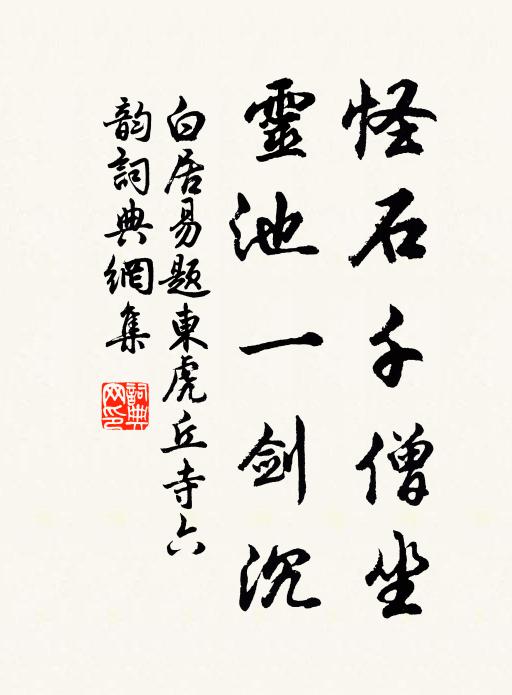 怪石千僧坐
靈池一劍沉
白居易題東虎丘寺六
韵詞典網集
詞典
网印